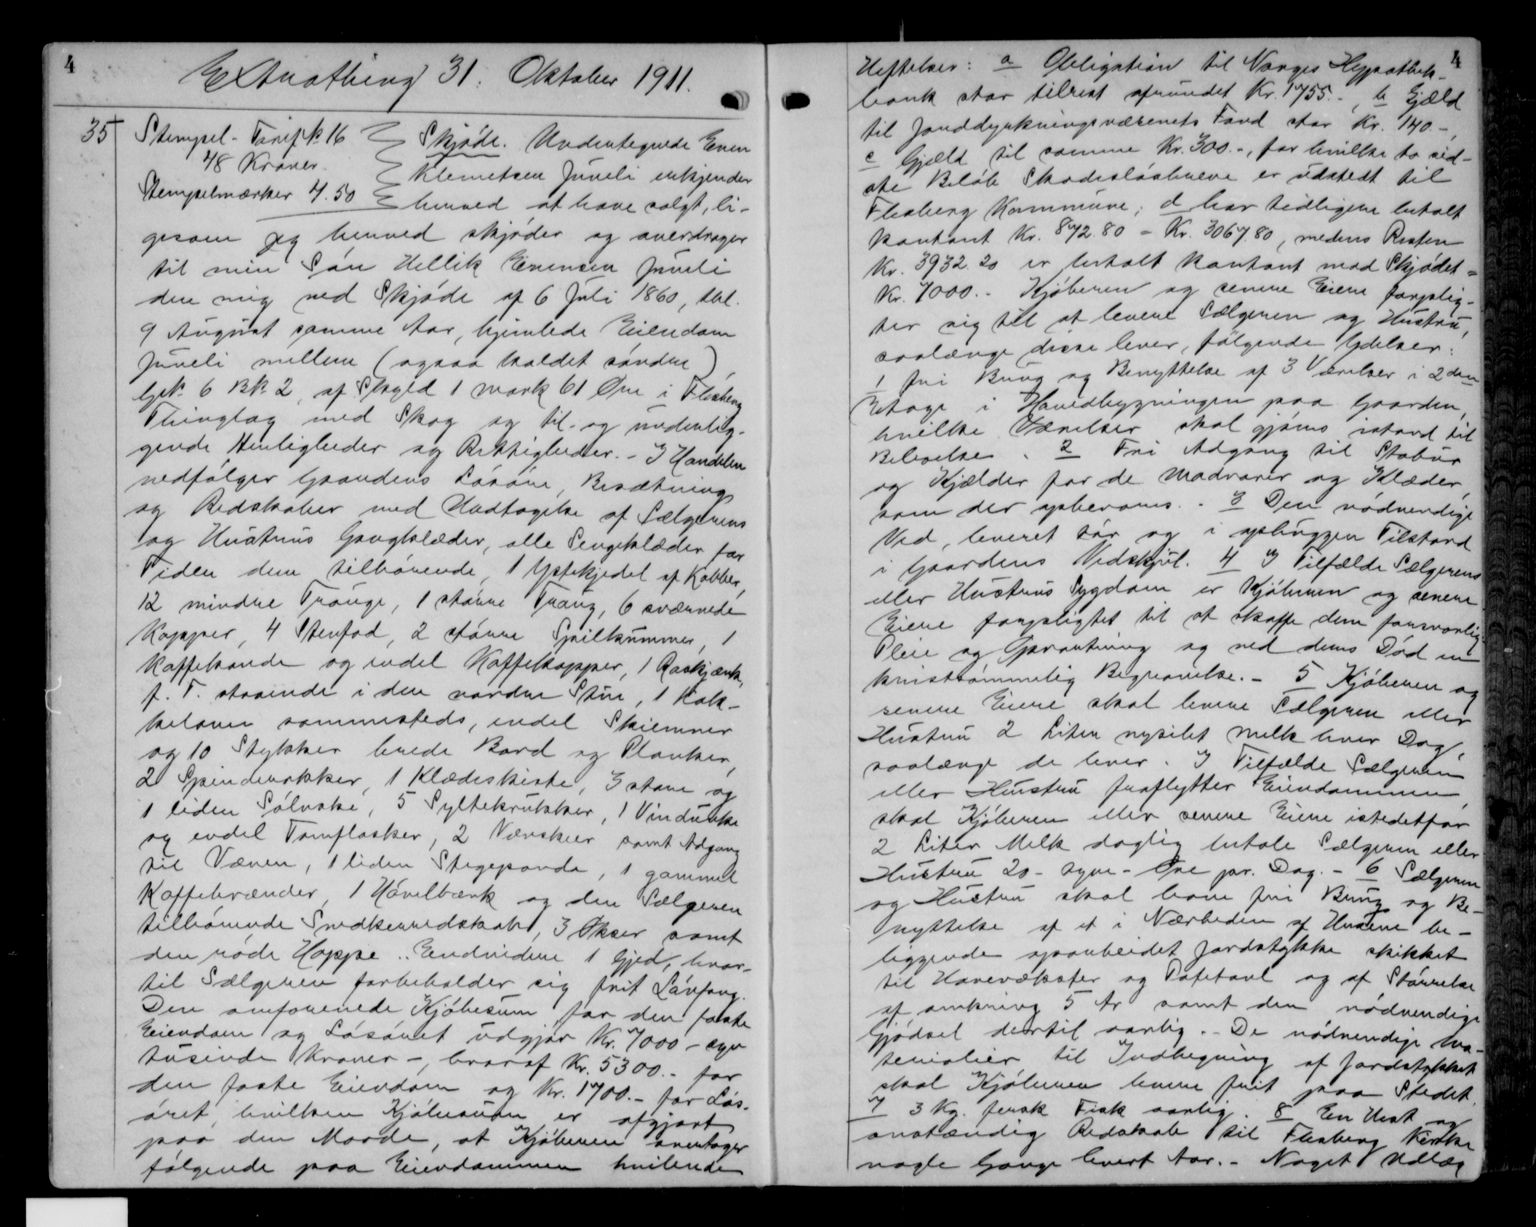 4
Extrathing 31. Oktober 1911.
35 Stempel-Tarif № 16 Skjøde. Undertegnede Even
48 Kroner. Klemetsen Juveli erkjender
Stempelmærker 4.50 herved at have solgt, li-
gesom jeg herved skjøder og overdrager
til min Søn Hellik Evensen Juveli
den mig ved Skjøde af 6 Juli 1860, tbl.
9 August samme Aar, hjemlede Eiendom
Juveli mellem (ogsaa kaldet søndre),
G№ 6 B№ 2, af Skyld 1 mark 61 Øre i Flesberg
Thinglag med Skog og til- og underlig-
gende Herligheder og Rettigheder. - I Handelen
medfølger Gaardens Løsøre, Besætning
og Redskaber med Undtagelse af Sælgerens
og Hustrus Gangklæder, alle Sengeklæder for
Tiden dem tilhørende, 1 Ystekjedel af Kobber,
12 mindre Trauge, 1 større Traug, 6 sværmede
Kopper, 4 Stenfad, 2 større Spilkummer, 1
Kaffekande og endel Kaffekopper, 1 Raskjænk,
f. T. staaende i den nordre Stue, 1 Kak-
kelovn sammesteds, endel Skiemner
og 10 Stykker brede Bord og Planker,
2 Spinderokker, 1 Klædeskiste, 3 store og
1 liden Sølvske, 5 Syltekrukker, 1 Vindunke
og endel Tomflasker, 2 Vævskeer samt Adgang
til Væven, 1 liden Stegepande, 1 gammel
Kaffebrænder, 1 Høvelbænk og den Sælgeren
tilhørende Snedkerredskab, 3 Økser samt
den røde Hoppe. Endvidere 1 Gjed, hvor-
til Sælgeren forbeholder sig frit Løvfang.
Den omforenede Kjøbesum for den faste
Eiendom og Løsøret udgjør Kr. 7000 - syv
tusinde Kroner -, hvoraf Kr. 5300.- for
den faste Eiendom og Kr. 1700.- for Løs-
øret, hvilken Kjøbesum er afgjort
paa den Maade, at Kjøberen overtager
følgende paa Eiendommen hvilende
4
Heftelser: a Obligation til Norges Hypothek-
bank stor tilrest afrundet Kr. 1755.-, b Gjæld
til Jorddyrkningsvæsenets Fond stor Kr. 140 -,
c Gjæld til samme Kr. 300.-, for hvilke to sid-
ste Beløb Skadesløsbreve er udstedt til
Flesberg Kommune; d har tidligere betalt
kontant Kr. 872.80 = Kr. 3067.80, medens Resten
Kr. 3932.20 er betalt kontant mod Skjødet =
Kr. 7000.- Kjøberen og senere Eiere forplig-
ter sig til at levere Sælgeren og Hustru,
saalænge disse lever, følgende Ydelser:
1 fri Brug og Benyttelse af 3 Værelser i 2den
Etage i Hovedbygningen paa Gaarden,
hvilke Værelser skal gjøres istand til
Beboelse. 2 Fri Adgang til Stabur
og Kjælder for de Madvarer og Klæder,
som der opbevares. - 3 Den nødvendige
Ved, leveret tør og i ophuggen Tilstand
i Gaardens Vedskjul. 4 I Tilfælde Sælgerens
eller Hustrus Sygdom er Kjøberen og senere
Eiere forpligtet til at skaffe dem forsvarlig
Pleie og Opvartning og ved deres Død en
kristsømmelig Begravelse. - 5 Kjøberen og
senere Eiere skal levere Sælgeren eller
Hustru 2 Liter nysilet Melk hver Dag,
saalænge de lever. I Tilfælde Sælgeren
eller Hustru fraflytter Eiendommen
skal Kjøberen eller senere Eiere istedetfor
2 Liter Melk daglig betale Sælgeren eller
Hustru 20 - tyve - Øre pr. Dag. - 6 Sælgeren
og Hustru skal have fri Brug og Be-
nyttelse af et i Nærheden af Husene be-
liggende oparbeidet Jordstykke skikket
til Havevækster og Potetavl og af Størrelse
af omkring 5 Ar samt den nødvendige
Gjødsel dertil aarlig. - De nødvendige Ma-
terialier til Indhegning af Jordstykket
skal Kjøberen levere frit paa Stedet.
7 3 Kg. fersk Fisk aarlig. 8 En Hest og
anstændig Redskab til Flesberg Kirke
nogle Gange hvert Aar. - Noget Udlæg